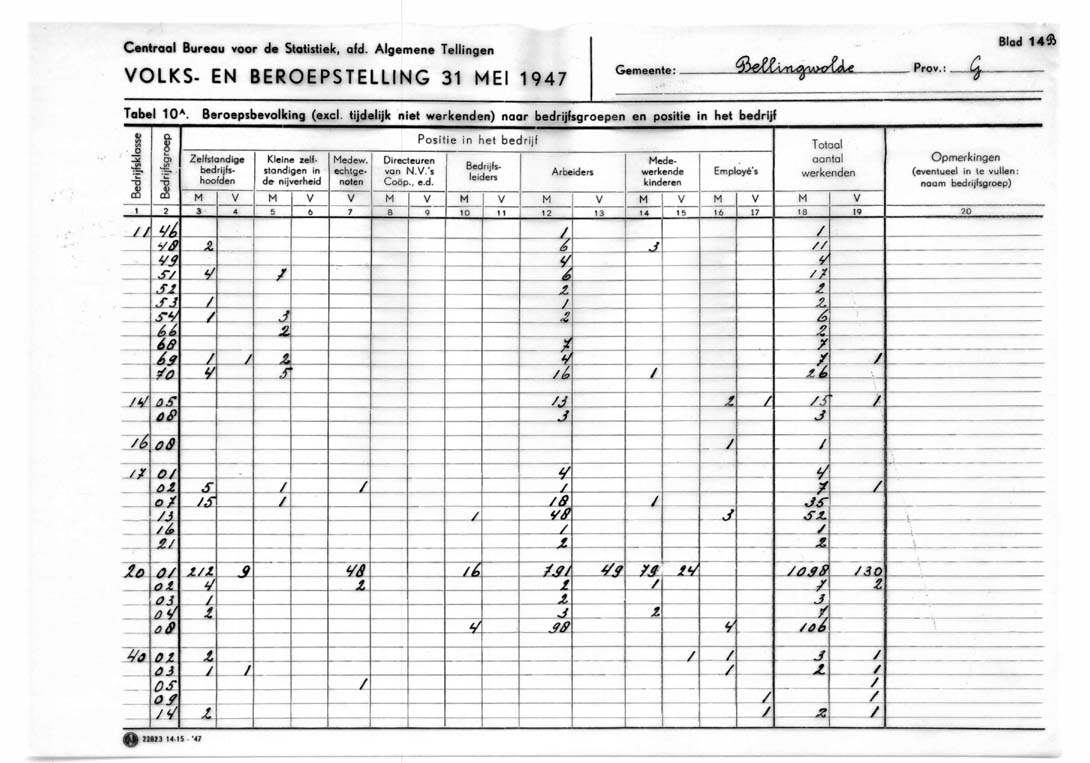 Centraal Bureau voor de Statistiek, afd. Algemene Tellingen
VOLKS- EN BEROEPSTELLING 31 MEI 1947
Gemeente: Bellingwolde Prov.: G
Blad 14B
Tabel 10A. Beroepsbevolking (excl. tijdelijk niet werkenden) naar bedrijfsgroepen en positie in het bedrijf
Bedrijfsklasse
Bedrijfsgroep
Positie in het bedrijf
Zelfstandige bedrijfs-hoofden
Kleine zelf-standigen in de nijverheid
Medew. echtge-noten
Directeuren van N.V.'s Coöp., e.d.
Bedrijfs-leiders
Arbeiders
Mede-werkende kinderen
Employé's
Totaal aantal werkenden
Opmerkingen (eventueel in te vullen: naam bedrijfsgroep)
M V M V V M V M V M V M V M V M V
1 2 3 4 5 6 7 8 9 10 11 12 13 14 15 16 17 18 19 20
11 46 1 1
48 2 6 3 11
49 4 4
51 4 7 6 17
52 2 2
53 1 1 2
54 1 3 2 6
66 2 2
68 7 7
69 1 1 2 4 7 1
70 4 5 16 1 26
14 05 13 2 1 15 1
08 3 3
16 08 1 1
17 01 4 4
02 5 1 1 1 7 1
07 15 1 18 1 35
13 1 48 3 52
16 1 1
21 2 2
20 01 212 9 48 16 791 49 79 24 1098 130
02 4 2 2 1 7 2
03 1 2 3
04 2 3 2 7
08 4 98 4 106
40 02 2 1 1 3 1
03 1 1 1 2 1
05 1 1
09 1 1
14 2 1 2 1
22823 14-15 - '47